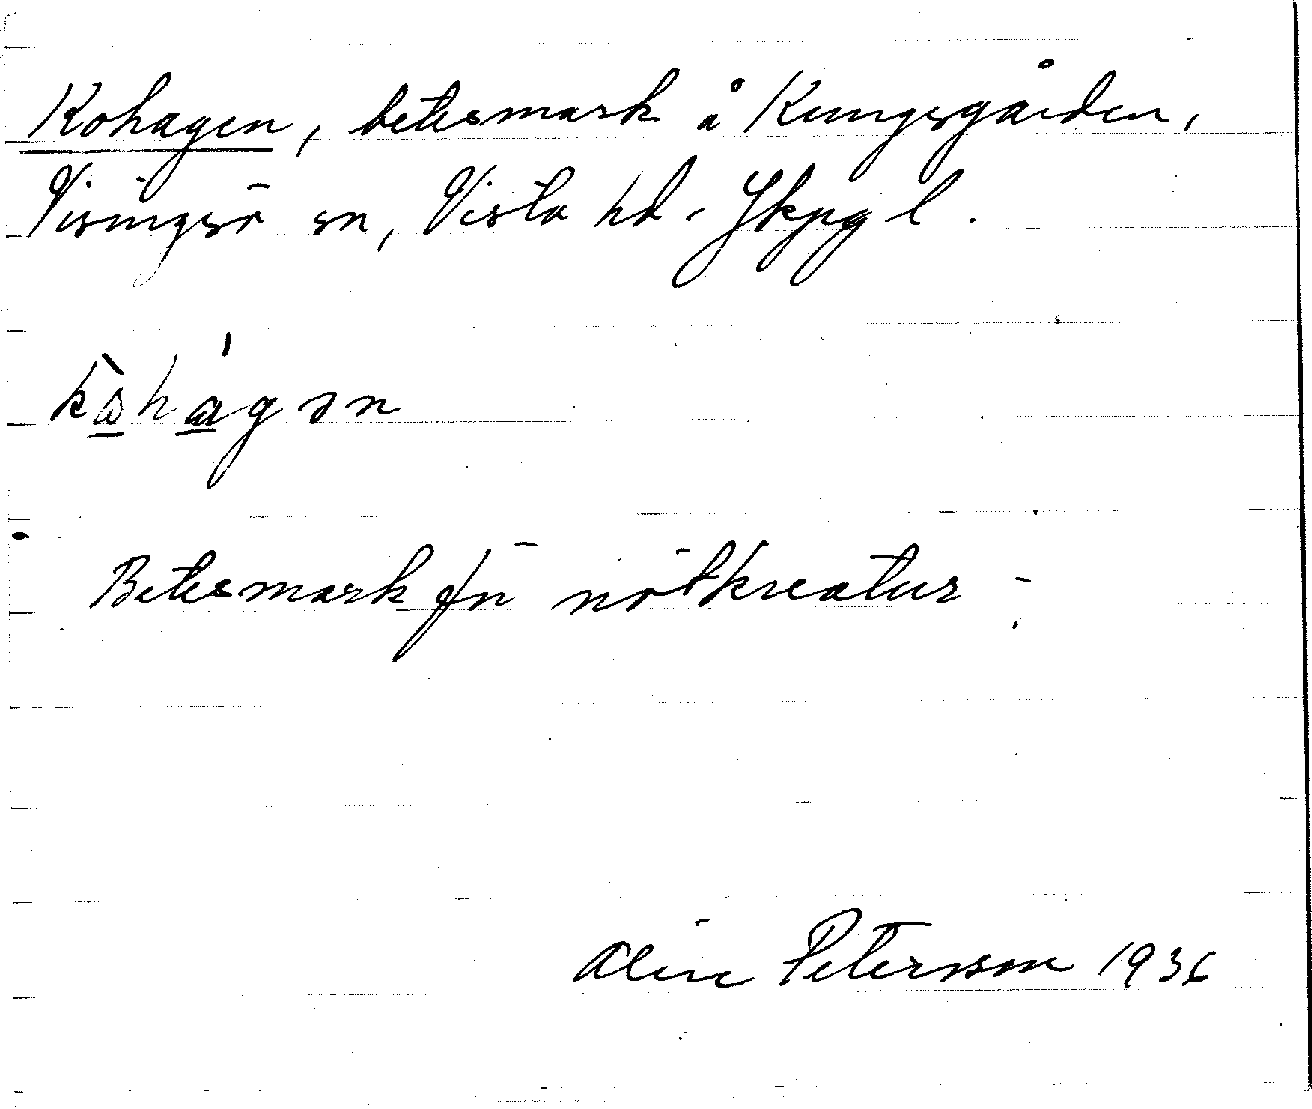 Kohagen, betesmark å Kungsgården,
Visingsö sn, Vista hd. Jkpg l.
kòhágən
Betesmark för nötkreatur.
Petersson 1936